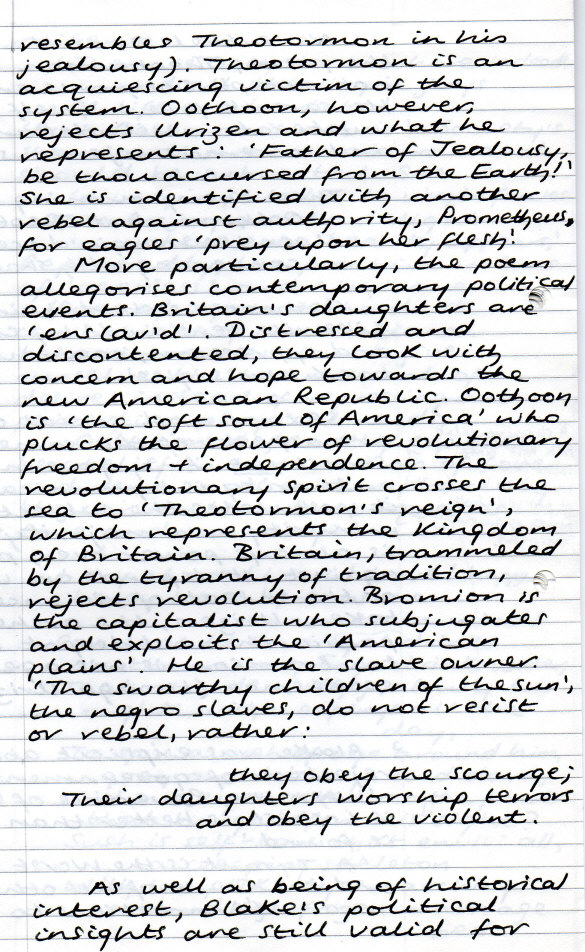 resembles Theotormon in his
jealousy). Theotormon is an
acquiescing victim of the
system. Oothoon, however,
rejects Urizen and what he
represents: 'Father of Jealousy,
be thou accursed from the Earth!'
She is identified with another
rebel against authority, Prometheus,
for eagles 'prey upon her flesh'.
More particularly, the poem
allegorises contemporary political
events. Britain's daughters are
'enslav'd'. Distressed and
discontented, they look with
concern and hope towards the
new American Republic. Oothoon
is 'the soft soul of America' who
plucks the flower of revolutionary
freedom + independence. The
revolutionary spirit crosses the
sea to 'Theotormon's reign',
which represents the Kingdom
of Britain. Britain, trammeled
by the tyranny of tradition,
rejects revolution. Bromion is
the capitalist who subjugates
and exploits the 'American
plains'. He is the slave owner.
'The swarthy children of the sun',
the negro slaves, do not resist
or rebel, rather:
they obey the scourge;
Their daughters worship terrors
and obey the violent.
As well as being of historical
interest, Blake's political
insights are still valid for